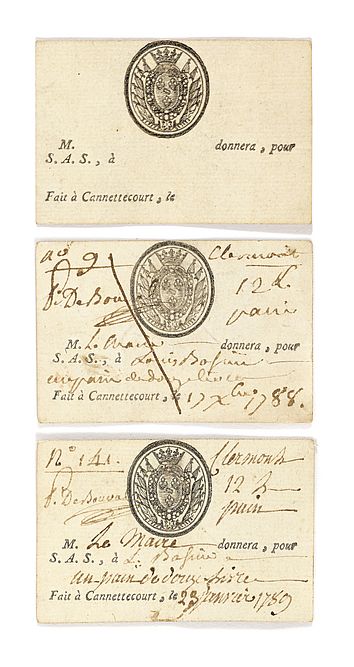 M. donnera, pour
S. A. S., à
Fait à Cannettecourt, le
no 9 Clermont
12 ₶
pain
M. Le Maire donnera, pour
S. A. S., à Louis
un pain de douze livres
Fait à Cannettecourt, le 17 Xbre 1788.
No 141. Clermont
12 ₶
pain
M. Le Maire donnera, pour
S. A. S., à L.
un pain de douze livre
Fait à Cannettecourt, le 23 janvier 1789